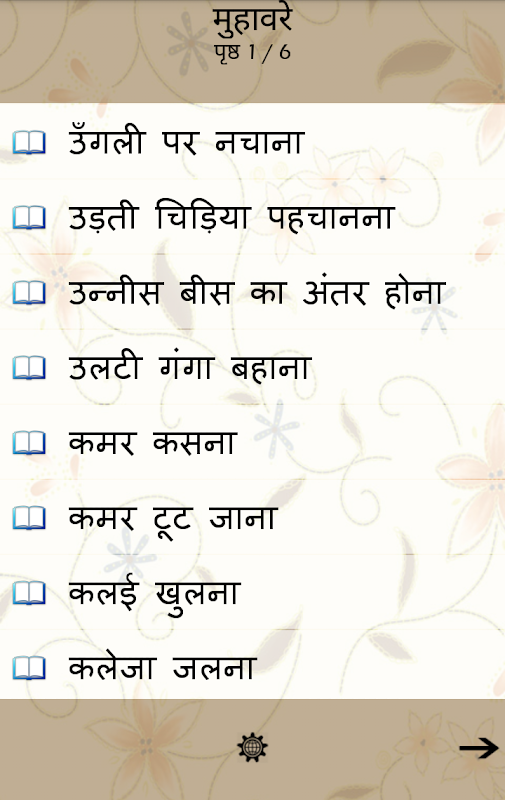 मुहावरे
पृष्ठ 1 / 6
उँगली पर नचाना
उड़ती चिड़िया पहचानना
उन्नीस बीस का अंतर होना
उलटी गंगा बहाना
कमर कसना
कमर टूट जाना
कलई खुलना
कलेजा जलना